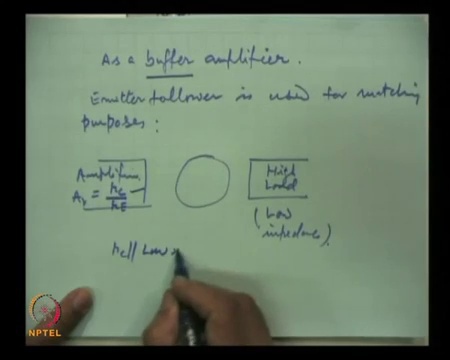 As a buffer amplifier.
Emitter follower is used for matching
purposes:
Amplifier
Av = rc / rE
High
Load
(Low
impedance)
rc || Low
NPTEL